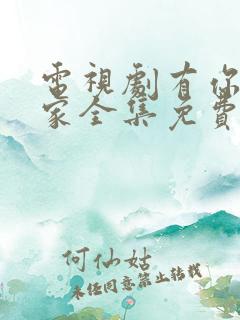 電視劇有你
家全集免費
何仙姑
未经同意禁止转载